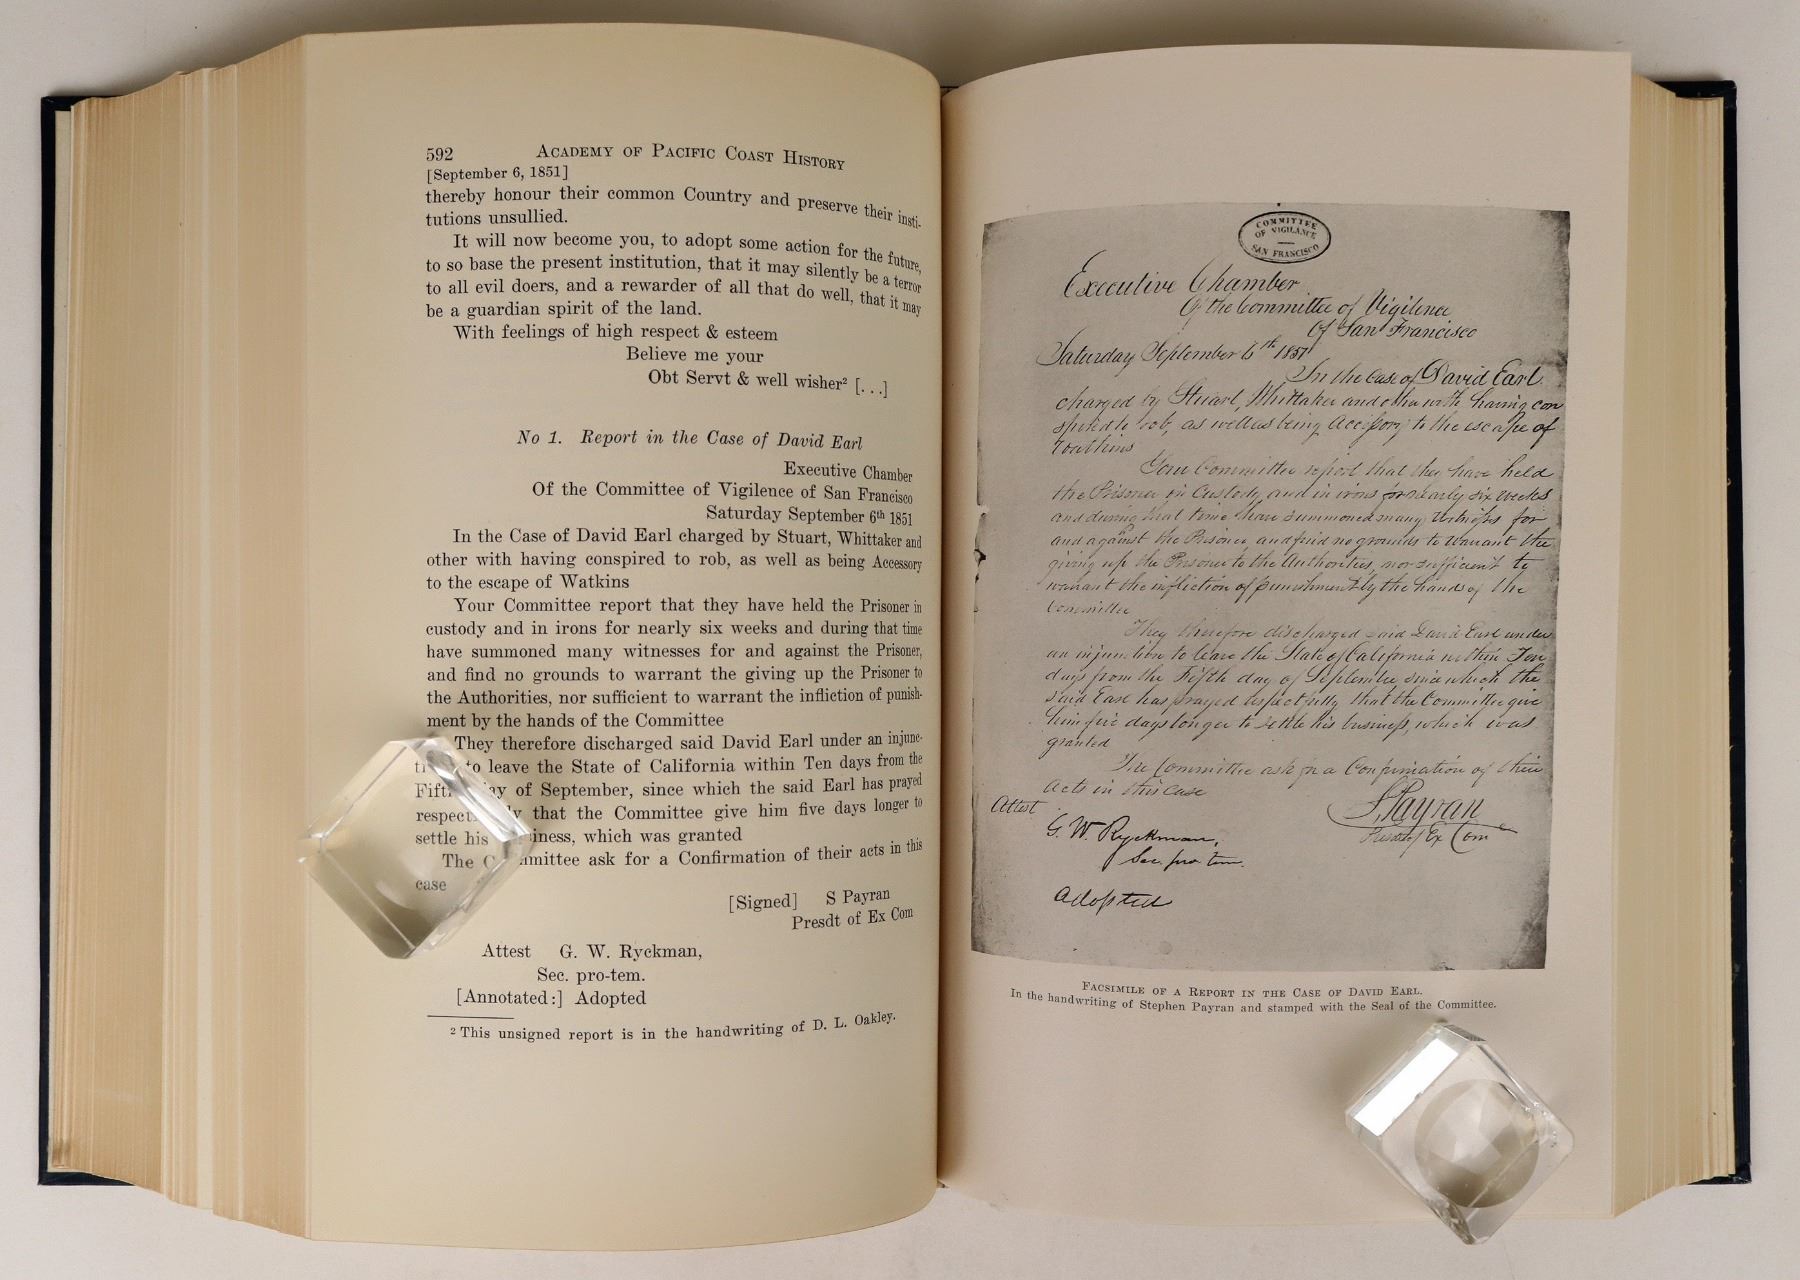 592 ACADEMY OF PACIFIC COAST HISTORY
[September 6, 1851]
thereby honour their common Country and preserve their insti-
tutions unsullied.
It will now become you, to adopt some action for the future,
to so base the present institution, that it may silently be a terror
to all evil doers, and a rewarder of all that do well, that it may
be a guardian spirit of the land.
With feelings of high respect & esteem
Believe me your
Obt Servt & well wisher² [...]
No 1. Report in the Case of David Earl
Executive Chamber
Of the Committee of Vigilence of San Francisco
Saturday September 6th 1851
In the Case of David Earl charged by Stuart, Whittaker and
other with having conspired to rob, as well as being Accessory
to the escape of Watkins
Your Committee report that they have held the Prisoner in
custody and in irons for nearly six weeks and during that time
have summoned many witnesses for and against the Prisoner,
and find no grounds to warrant the giving up the Prisoner to
the Authorities, nor sufficient to warrant the infliction of punish-
ment by the hands of the Committee
They therefore discharged said David Earl under an injunc-
to leave the State of California within Ten days from the
of September, since which the said Earl has prayed
that the Committee give him five days longer to
settle his which was granted
The ask for a Confirmation of their acts in this
case
[Signed] S Payran
Presdt of Ex Com
Attest G. W. Ryckman,
Sec. pro-tem.
[Annotated:] Adopted
² This unsigned report is in the handwriting of D. L. Oakley.
COMMITTEE
OF VIGILANCE
SAN FRANCISCO
Executive Chamber
Of the Committee of Vigilence
Of San Francisco
Saturday September 6th 1851
In the Case of David Earl
charged by Stuart, Whittaker and other with having con
spired to rob, as well as being Accessory to the escape of
Watkins
Your Committee report that they have held
the Prisoner in Custody, and in irons for nearly six weeks
and during that time have summoned many Witnesses for
and against the Prisoner and find no grounds to warrant the
giving up the Prisoner to the Authorities, nor sufficient to
warrant the infliction of punishment by the hands of the
Committee
They therefore discharged said David Earl under
an injunction to leave the State of California within Ten
days from the Fifth day of September since which the
said Earl has prayed respectfully that the Committee give
him five days longer to settle his business, which was
granted
The Committee ask for a Confirmation of their
acts in this case
Attest
S. Payran
Presdt of Ex Com
G. W. Ryckman,
Sec. pro tem.
Adopted
FACSIMILE OF A REPORT IN THE CASE OF DAVID EARL.
In the handwriting of Stephen Payran and stamped with the Seal of the Committee.